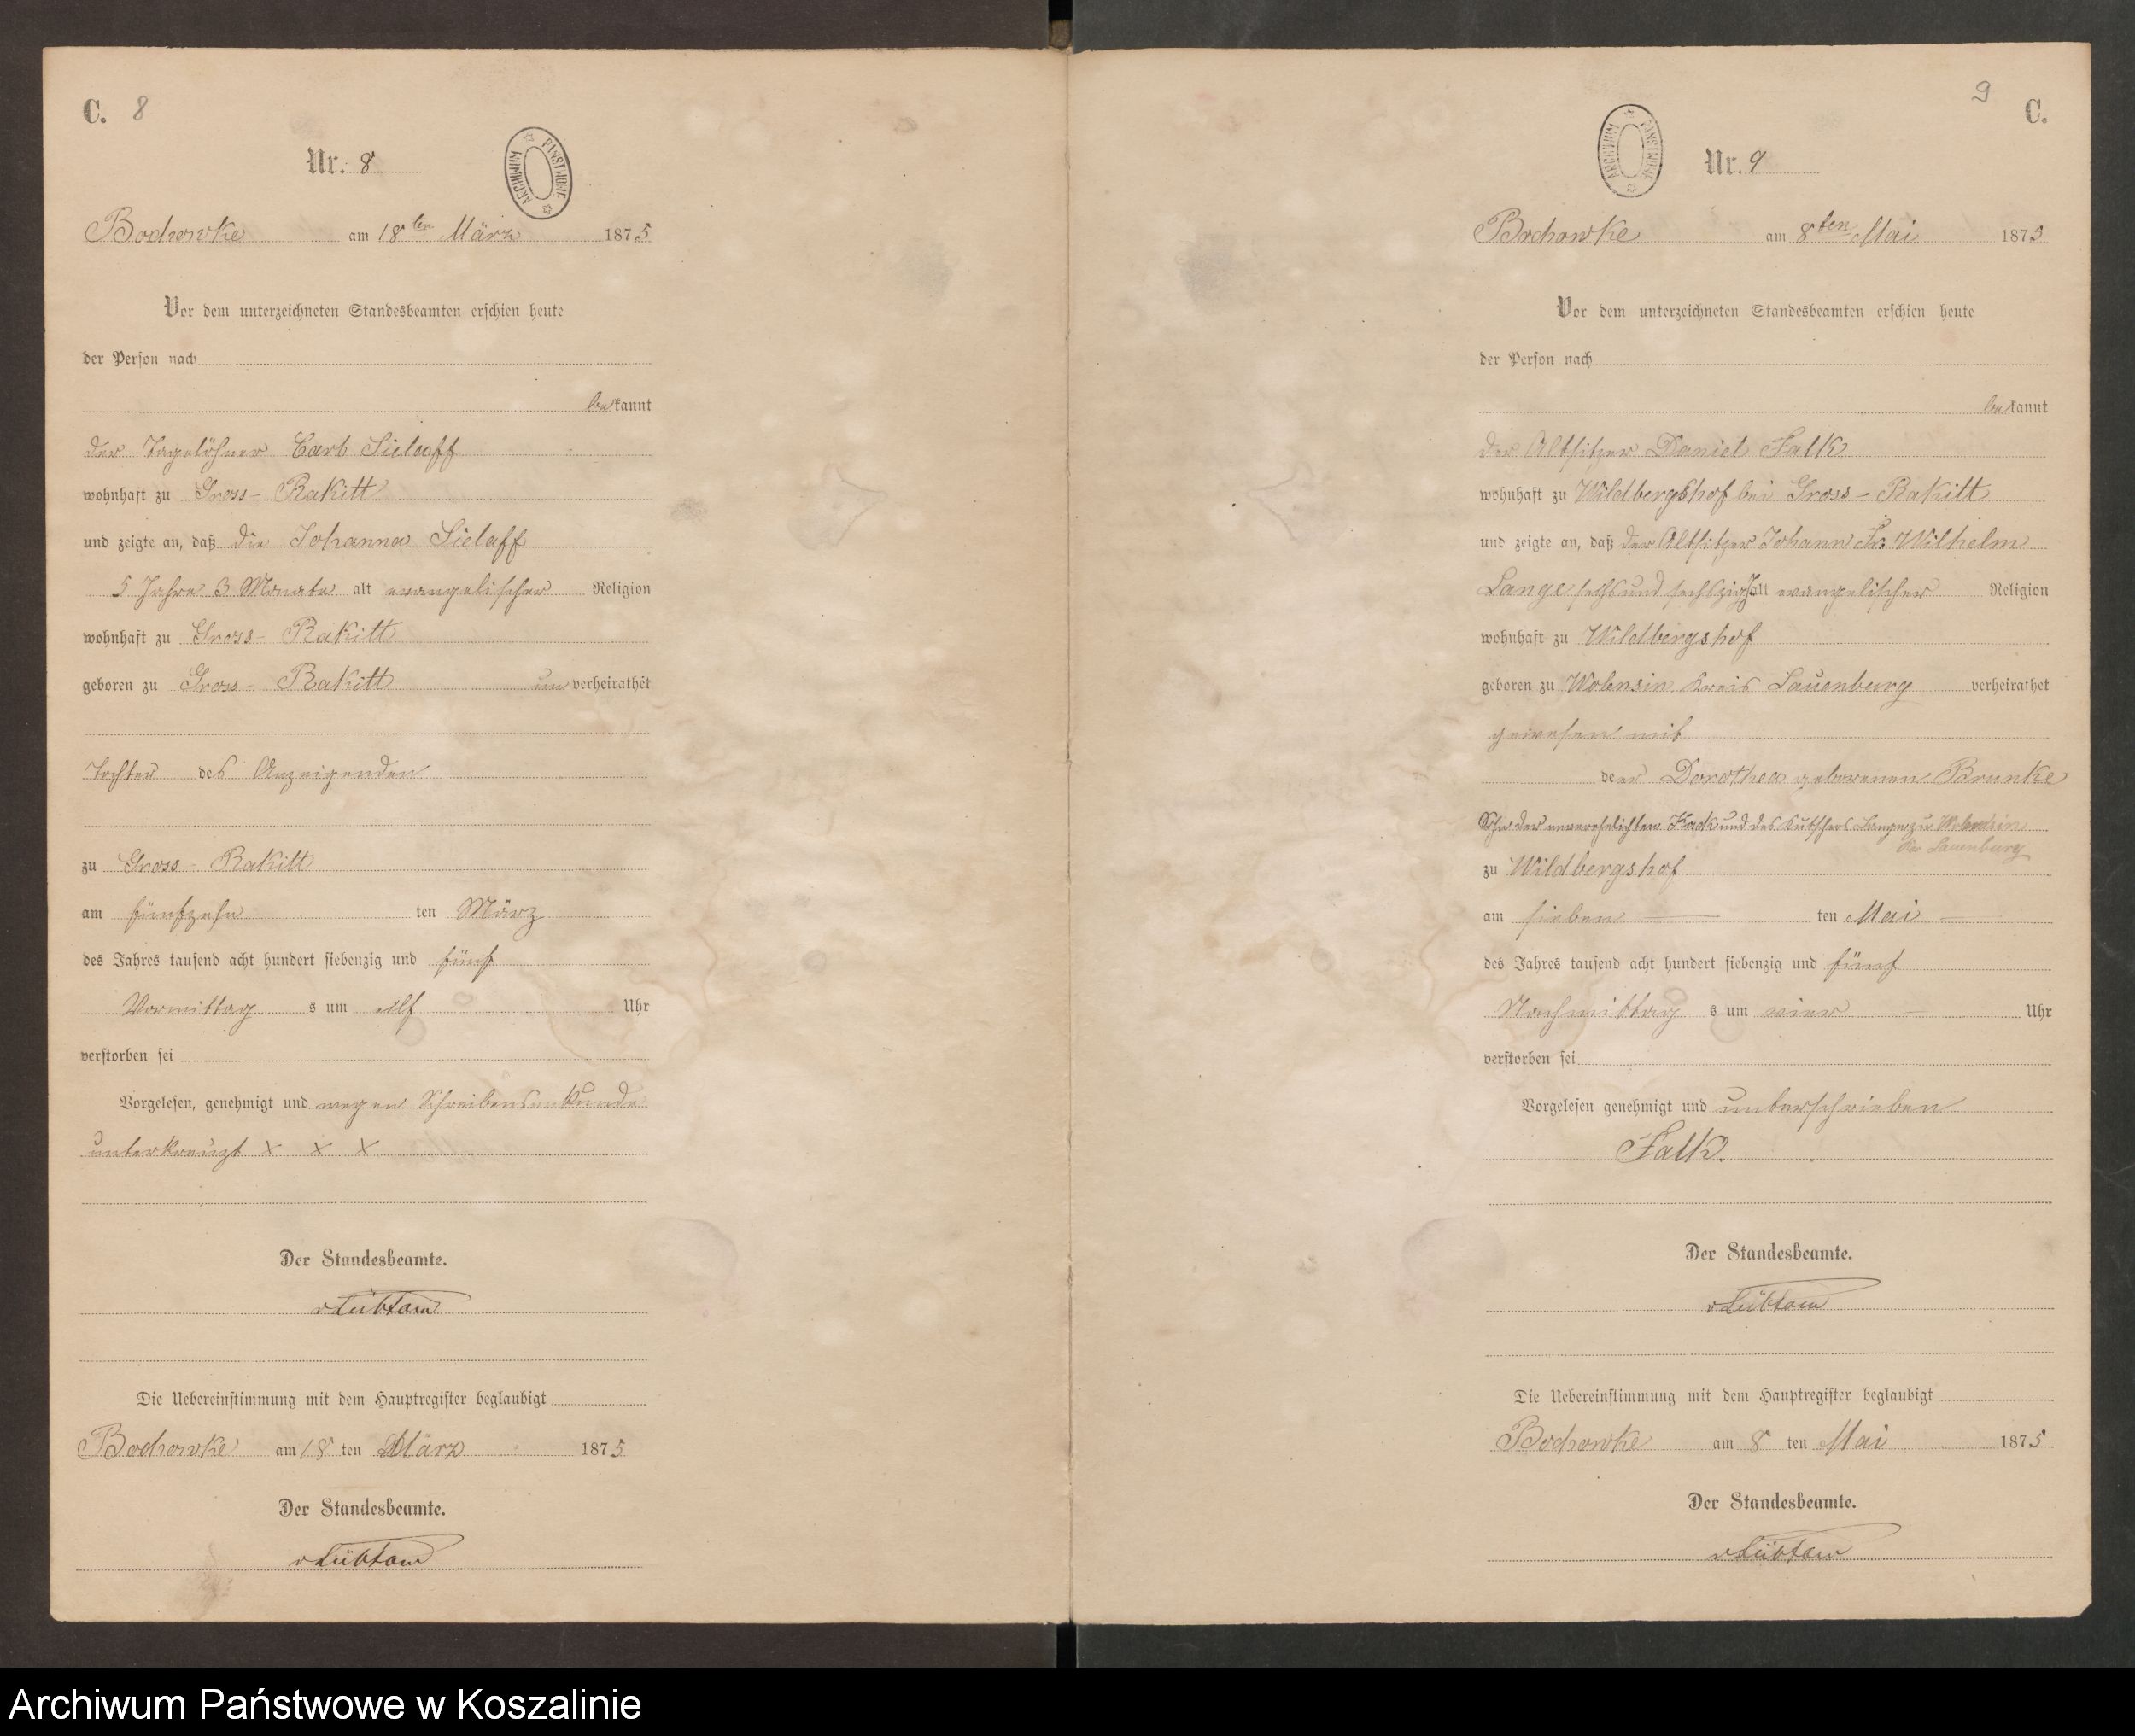 C. 8
Nr. 8
ARCHIWUM PAŃSTWOWE
Bochowke am 18ten März 1875
Vor dem unterzeichneten Standesbeamten erschien heute
der Person nach
bekannt
der Tagelöhner Carl Sielaff
wohnhaft zu Gross-Rakitt
und zeigte an, daß die Johanna Sielaff
5 Jahre 3 Monate alt evangelischer Religion
wohnhaft zu Gross-Rakitt
geboren zu Gross-Rakitt unverheirathet
Tochter des Anzeigenden
zu Gross-Rakitt
am fünfzehn ten März
des Jahres tausend acht hundert siebenzig und fünf
Vormittag s um elf Uhr
verstorben sei
Vorgelesen, genehmigt und wegen Schreibensunkunde
unterkreuzt x x x
Der Standesbeamte.
vLübtow
Die Uebereinstimmung mit dem Hauptregister beglaubigt
Bochowke am 18 ten März 1875
Der Standesbeamte.
vLübtow
9 C.
ARCHIWUM PAŃSTWOWE
Nr. 9
Bochowke am 8ten Mai 1875
Vor dem unterzeichneten Standesbeamten erschien heute
der Person nach
bekannt
der Altsitzer Daniel Falk
wohnhaft zu Wildbergshof bei Gross-Rakitt
und zeigte an, daß der Altsitzer Johann Fr. Wilhelm
Lange sechs und sechszig J. alt evangelischer Religion
wohnhaft zu Wildbergshof
geboren zu Wobensin Kreis Lauenburg verheirathet
gewesen mit
der Dorothea geborenen Brunke
Sohn der unverehelichten Kack und des Kutschers Lange zu Wobensin
Kr. Lauenburg
zu Wildbergshof
am sieben ten Mai
des Jahres tausend acht hundert siebenzig und fünf
Nachmittag s um vier Uhr
verstorben sei
Vorgelesen genehmigt und unterschrieben
Falk.
Der Standesbeamte.
vLübtow
Die Uebereinstimmung mit dem Hauptregister beglaubigt
Bochowke am 8 ten Mai 1875
Der Standesbeamte.
vLübtow
Archiwum Państwowe w Koszalinie